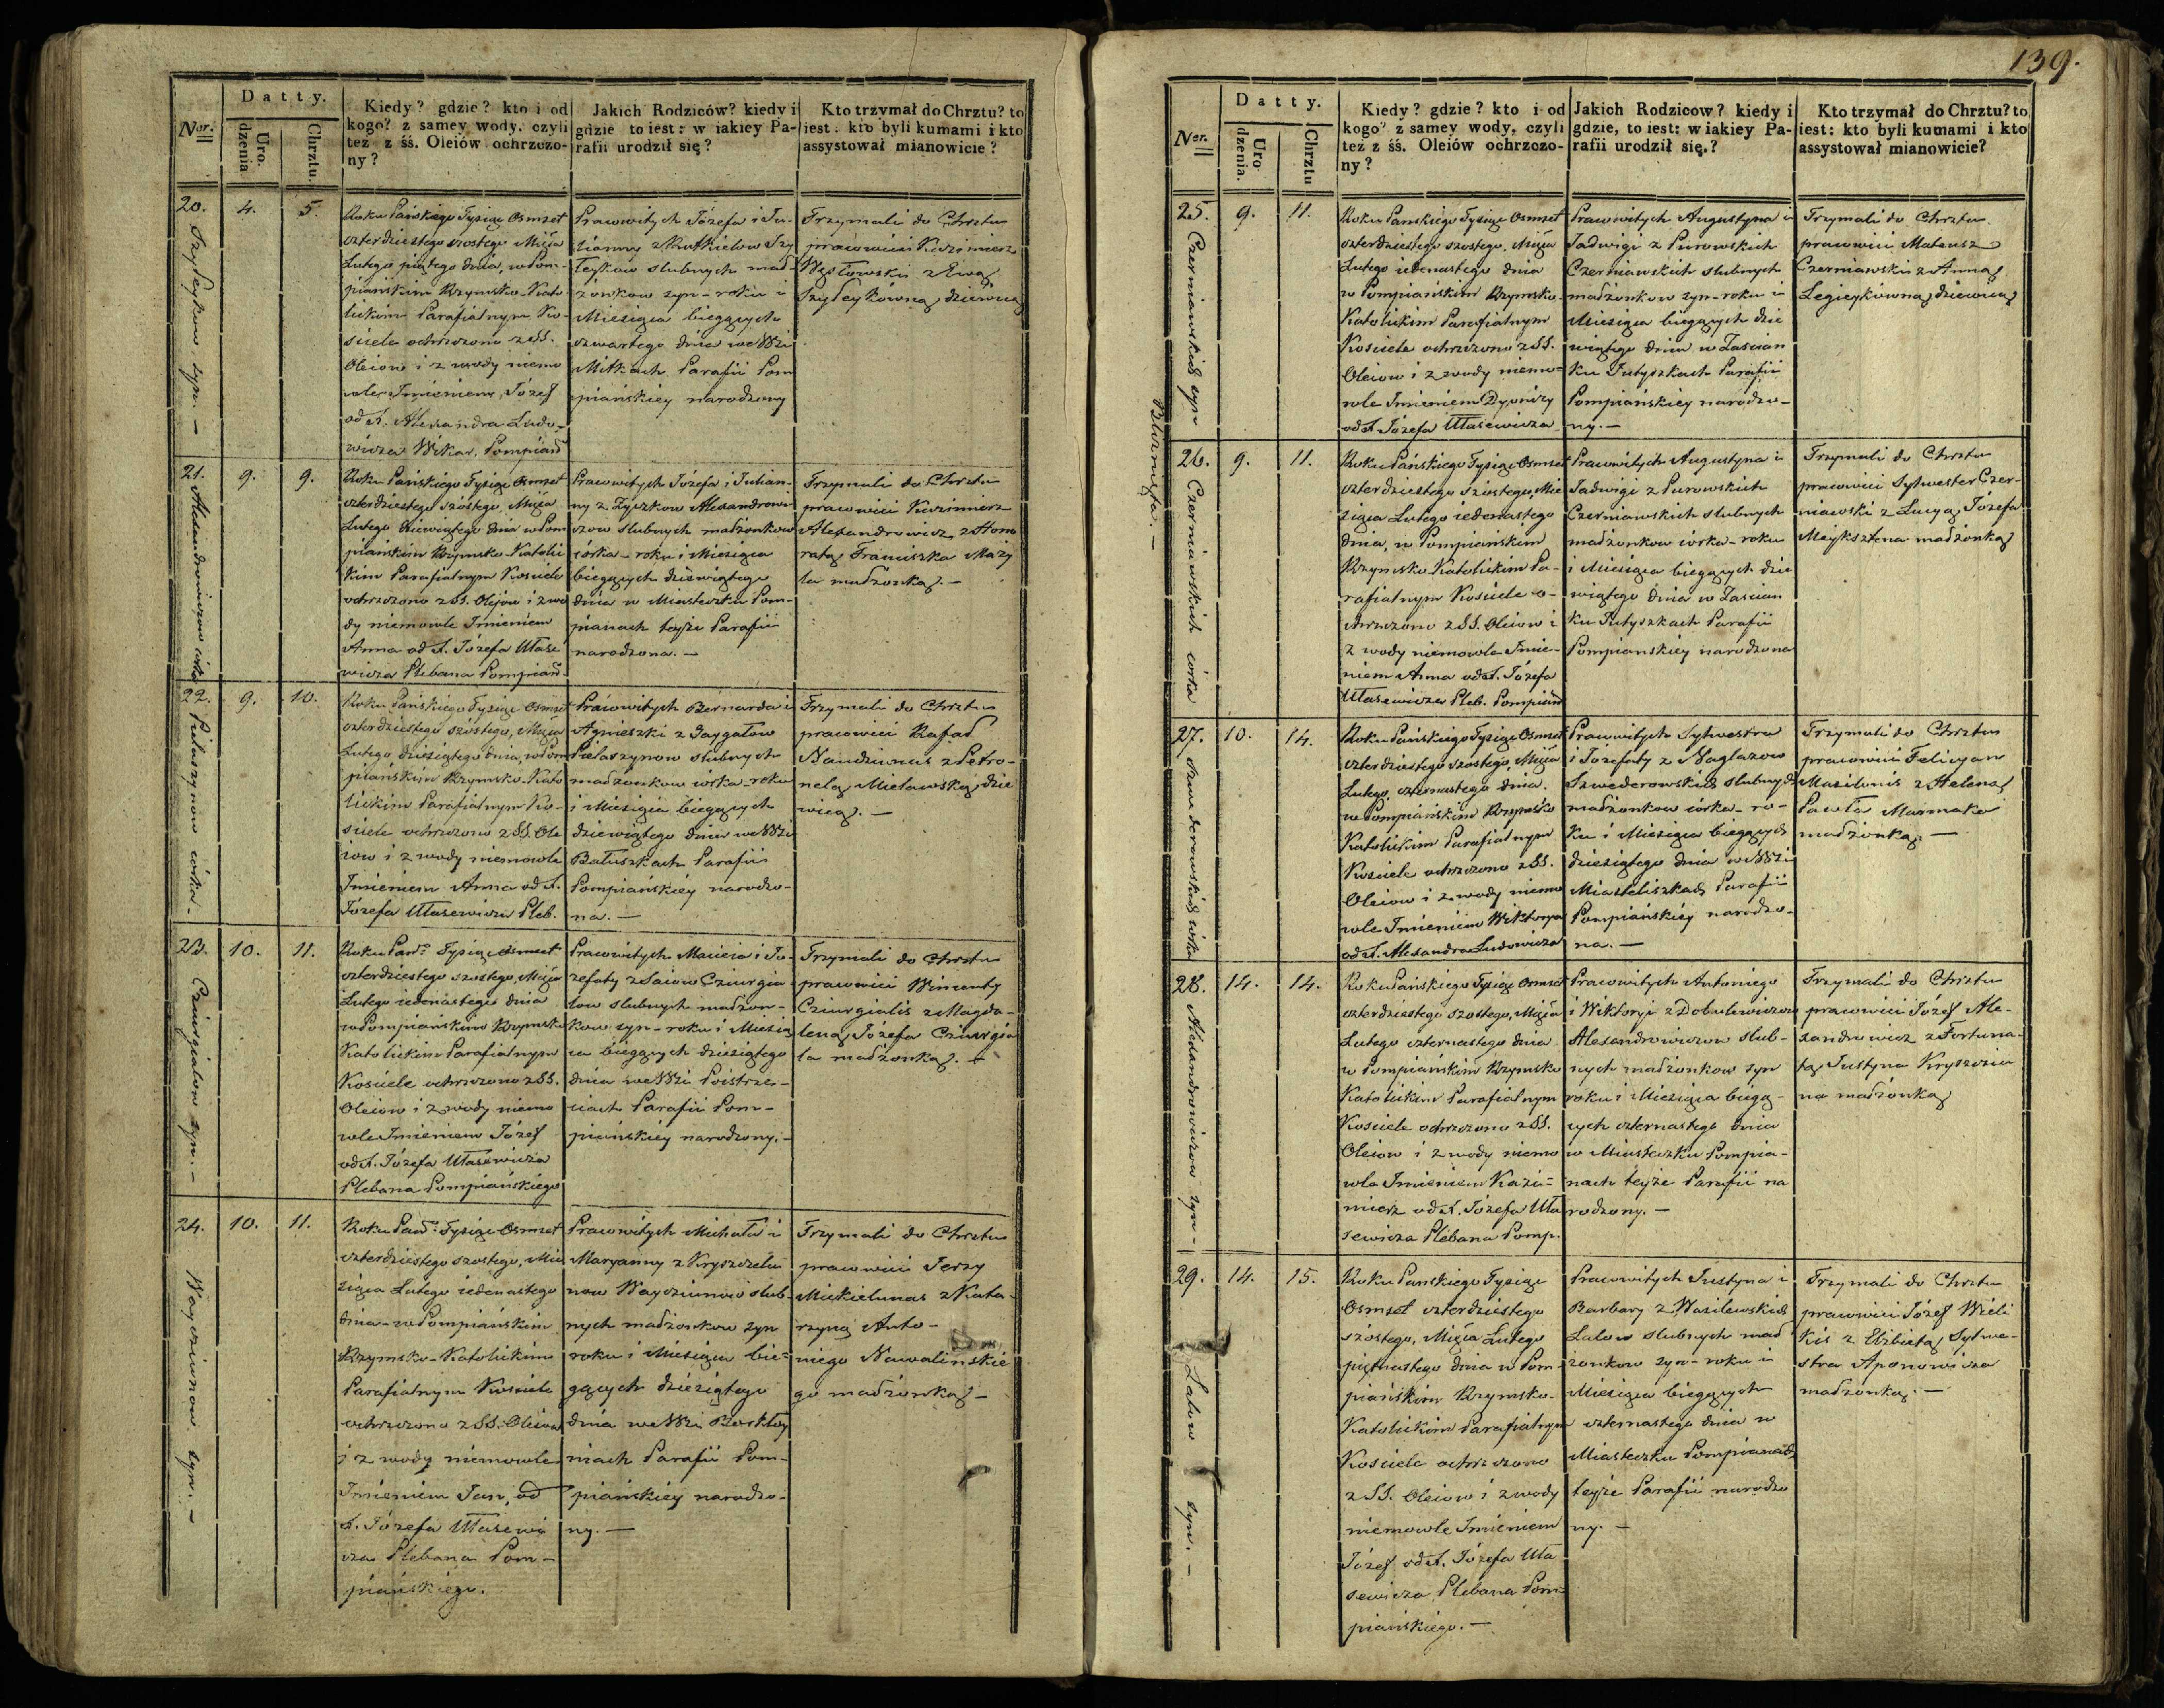 Datty.
Ner.
Uro-
dzenia
Chrztu.
Kiedy? gdzie? kto i od
kogo? z samey wody, czyli
też z śś. Oleiów ochrzczo-
ny?
Jakich Rodziców? kiedy i
gdzie to iest: w iakiey Pa-
rafii urodził się?
Kto trzymał do Chrztu? to
iest: kto byli kumami i kto
assystował mianowicie?
20.
4.
5.
syn. —
Roku Pańskiego Tysiąc Osmset
czterdziestego szostego Mięća
Lutego piątego dnia, w Pom-
piańskim Rzymsko-Kato
lickim Parafialnym Ko-
ściele ochrzczono z SS.
Oleiow i z wody niemo
wle Imieniem Józef
od X. Alexandra Ludo-
wicza Wikar. Pompiań
Prawowitych Józefa i Ju-
lianny z Rutkielow Szy
leykow slubnych mał-
żonkow syn – roku i
Miesiąca bieżących
czwartego dnia we Wsi
Mitkach Parafii Pom
piańskiey narodzony
Trzymali do Chrztu
prawowici Kazimierz
Węsłowski z Ewą
Szyleykówną dziewicą
21.
9.
9.
Alexandrowiczow córka
Roku Pańskiego Tysiąc Osmset
czterdziestego szóstego, Mięća
Lutego dziewiątego dnia w Pom
piańskim Rzymsko-Katolic
kim Parafialnym Kosciele
ochrzczono z SS. Olejow i z wo
dy niemowle Imieniem
Anna od X. Józefa Ułase
wicza Plebana Pompiań
Prawowitych Józefa i Julian-
ny z Zyzkow Alexandrowi
czow slubnych małżonkow
córka – roku i Miesiąca
bieżących dziewiątego
dnia w Miasteczku Pom-
pianach teyże Parafii
narodzona. —
Trzymali do Chrztu
prawowici Kazimierz
Alexandrowicz z Hono
ratą Franciszka Mazy
la małżonką. —
22.
9.
10.
Pielaszynow córka.
Roku Pańskiego Tysiąc Osmset
czterdziestego szóstego, Mięća
Lutego, dziesiątego dnia, w Pom
piańskim Rzymsko-Kato
lickim Parafialnym Ko-
sciele ochrzczono z SS. Ole
iow i z wody niemowle
Imieniem Anna od X.
Józefa Ułasewicza Pleb.
Prawowitych Bernarda i
Agnieszki z Gaygałow
Pielaszynow slubnych
małżonkow córka – roku
i Miesiąca bieżących
dziewiątego dnia we Wsi
Bałuszkach Parafii
Pompiańskiéy narodzo-
na. —
Trzymali do Chrztu
prawowici Rafał
Naudziunas z Petro-
nelą Mielawską dzie
wicą. —
23.
10.
11.
Cziurgialow syn. —
Roku Pań: Tysiąc Osmset
czterdziestego szostego, Mięća
Lutego iedenastego dnia
w Pompiańskim Rzymsko
Katolickim Parafialnym
Kosciele ochrzczono z SS.
Oleiow i z wody niemo
wle Imieniem Józef
od X. Józefa Ułasewicza
Plebana Pompiańskiego
Prawowitych Macieia i Jo-
zefaty z Saiow Cziurgia
low slubnych małżon-
kow syn – roku i Miesią
ca bieżących dziesiątego
dnia we Wsi Poistrze-
ciach Parafii Pom-
piańskiey narodzony. –
Trzymali do Chrztu
prawowici Wincenty
Cziurgialis z Magda-
leną Józefa Cziurgia
la małżonką. —
24.
10.
11.
Wayciunow syn. —
Roku Pań: Tysiąc Osmset
czterdziestego szostego, Mie
siąca Lutego iedenastego
dnia – w Pompiańskim
Rzymsko-Katolickim
Parafialnym Kosciele
ochrzczono z SS. Oleiow
i z wody niemowle
Imieniem Jan, od
X. Józefa Ułasewi
cza Plebana Pom-
piańskiego.
Prawowitych Michała i
Maryanny z Kryszczelu
now Wayciunow slub-
nych małżonkow syn
roku i Miesiąca bie-
gących dziesiątego
dnia we Wsi
niach Parafii Pom-
piańskiey narodzo-
ny. —
Trzymali do Chrztu
prawowici Jerzy
Mickielunas z Kata-
rzyną Anto-
niego Nawalinskie
go małżonką –
139.
Datty.
Ner.
Uro
dzenia.
Chrztu
Kiedy? gdzie? kto i od
kogo? z samey wody, czyli
też z śś. Oleiów ochrzczo-
ny?
Jakich Rodzicow? kiedy i
gdzie, to iest: w iakiey Pa-
rafii urodził się.?
Kto trzymał do Chrztu? to
iest: kto byli kumami i kto
assystował mianowicie?
25.
9.
11.
Czerniawskich syn
Bliznięta. —
Roku Pańskiego Tysiąc Osmset
czterdziestego szostego, Mięća
Lutego iedenastego dnia
w Pompiańskim Rzymsko-
Katolickim Parafialnym
Kosciele ochrzczono z SS.
Oleiow i z wody niemo-
wle Imieniem Dyonizy
od X. Józefa Ułasewicza
Prawowitych Augustyna i
Jadwigi z Purowskich
Czerniawskich slubnych
małżonkow syn – roku i
Miesiąca bieżących dzie
wiątego dnia w Zascian
ku Putyszkach Parafii
Pompiańskiey narodzo-
ny. —
Trzymali do Chrztu
prawowici Mateusz
Czerniawski z Anną
Legieykówną dziewicą
26.
9.
11.
Czerniawskich córka
Roku Pańskiego Tysiąc Osmset
czterdziestego szóstego, Mie
siąca Lutego iedenastego
dnia, w Pompiańskim
Rzymsko Katolickim Pa-
rafialnym Kosciele o-
chrzczono z SS. Oleiow i
z wody niemowle Imie-
niem Anna od X. Józefa
Ułasewicza Pleb. Pompiań
Prawowitych Augustyna i
Jadwigi z Purowskich
Czerniawskich slubnych
małżonkow córka – roku
i Miesiąca bieżących dzie
wiątego dnia w Zascian
ku Putyszkach Parafii
Pompianskiéy narodzona
Trzymali do Chrztu
prawowici Sylwester Czer-
niawski z Lucyą Józefa
Meyksztena małżonką
27.
10.
14.
Szwederowskich córka
Roku Pańskiego Tysiąc Osmset
czterdziestego szostego, Mięća
Lutego, czternastego dnia.
w Pompiańskim Rzymsko
Katolickim Parafialnym
Kosciele ochrzczono z SS.
Oleiow i z wody niemo
wle Imieniem Wiktorya
od X. Alexandra Ludowicza
Prawowitych Sylwestra
i Józefaty z Naglazow
Szwederowskich slubnych
małżonkow córka – ro-
ku i Miesiąca bieżących
dziesiątego dnia we Wsi
Miasteliszkach Parafii
Pompiańskiéy narodzo-
na. —
Trzymali do Chrztu
prawowici Felicyan
Masilunis z Heleną
Pawła Marmaka
małżonką. —
28.
14.
14.
Alexandrowiczow syn –
Roku Pańskiego Tysiąc Osmset
czterdziestego szostego, Mięća
Lutego czternastego dnia
w Pompiańskim Rzymsko
Katolickim Parafialnym
Kosciele ochrzczono z SS.
Oleiow i z wody niemo
wle Imieniem Kazi-
mierz od X. Józefa Uła
sewicza Plebana Pomp.
Prawowitych Antoniego
i Wiktoryi z Dobulewiczow
Alexandrowiczow slub-
nych małżonkow syn
roku i Miesiąca biegą-
cych czternastego dnia
w Miasteczku Pompia-
nach teyże Parafii na
rodzony. —
Trzymali do Chrztu
prawowici Józef Ale-
xandrowicz z Fortuna-
tą Justyna Kryszciu
na małżonką
29.
14.
15.
Lalow syn. —
Roku Pańskiego Tysiąc
Osmset czterdziestego
szóstego, Mięća Lutego
piętnastego dnia w Pom
piańskim Rzymsko-
Katolickim Parafialnym
Kosciele ochrzczono
z SS. Oleiow i z wody
niemowle Imieniem
Józef od X. Józefa Uła
sewicza Plebana Pom-
piańskiego. —
Prawowitych Justyna i
Barbary z Wasilewskich
Lalow slubnych mał
żonkow syn – roku i
Miesiąca bieżących
czternastego dnia w
Miasteczku Pompianach
teyże Parafii narodzo
ny. —
Trzymali do Chrztu
prawowici Józef Wieli
kis z Elżbietą Sylwe-
stra Aponowicza
małżonką. —